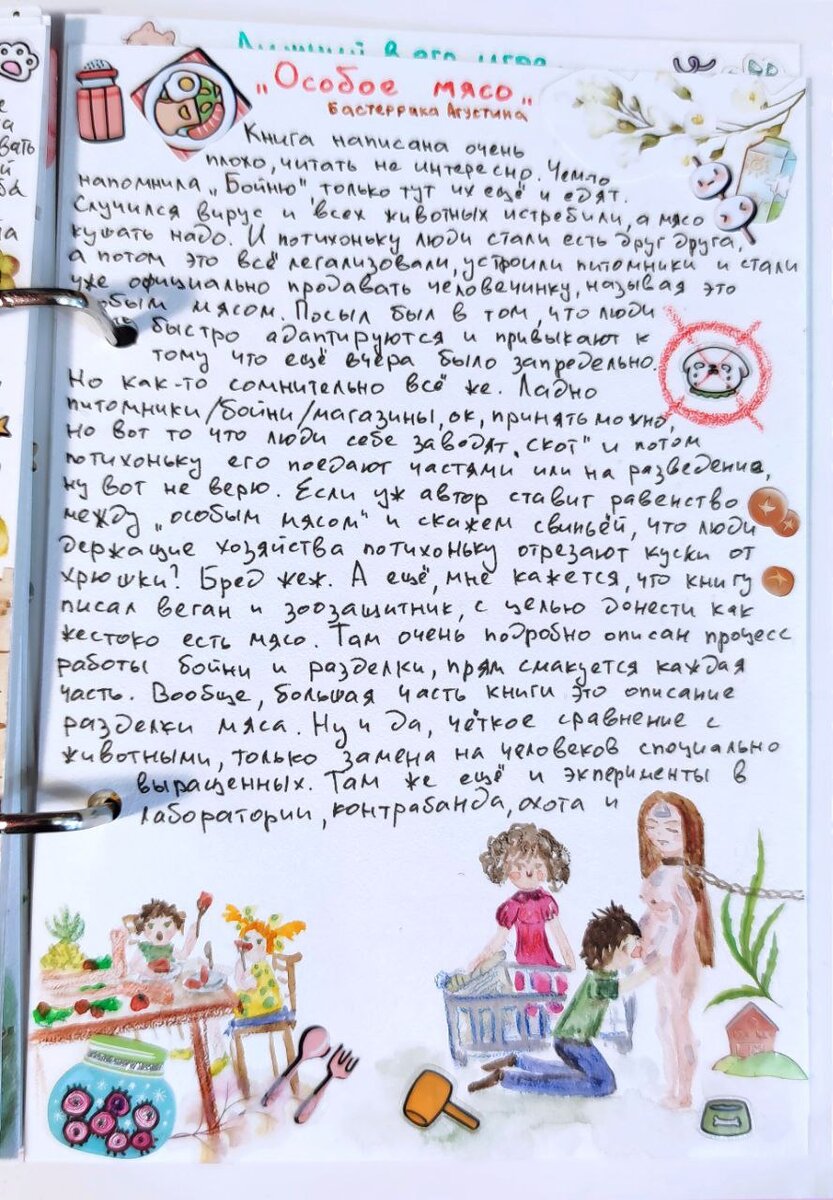 „Особое мясо„
Бастеррика Агустина
Книга написана очень
плохо, читать не интересно. Чем-то
напомнила „Бойню" только тут их ещё и едят.
Случился вирус и всех животных истребили, а мясо
кушать надо. И потихоньку люди стали есть друг друга,
а потом это всё легализовали, устроили питомники и стали
уже официально продавать человечинку, называя это
обым мясом. Посыл был в том, что люди
быстро адаптируются и привыкают к
тому что ещё вчера было запредельно.
Но как-то сомнительно всё же. Ладно
питомники/бойни/магазины, ок, принять можно,
но вот то что люди себе заводят „скот" и потом
потихоньку его поедают частями или на разведение,
ну вот не верю. Если уж автор ставит равенство
между „особым мясом" и скажем свиньёй, что люди
держащие хозяйства потихоньку отрезают куски от
хрюшки? Бред жеж. А ещё, мне кажется, что книгу
писал веган и зоозащитник, с целью донести как
жестоко есть мясо. Там очень подробно описан процесс
работы бойни и разделки, прям смакуется каждая
часть. Вообще, большая часть книги это описание
разделки мяса. Ну и да, чёткое сравнение с
животными, только замена на человеков специально
выращенных. Там же ещё и эксперименты в
лаборатории, контрабанда, охота и